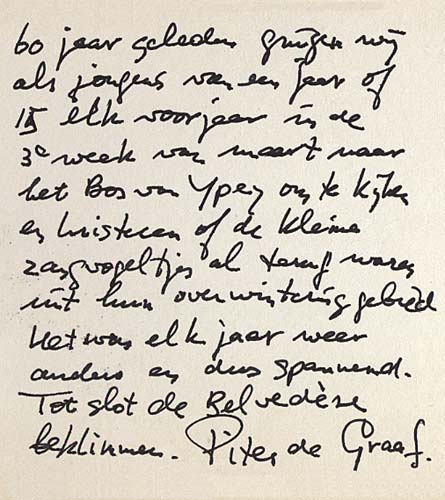 60 jaar geleden gingen wij
als jongens van een jaar of
15 elk voorjaar in de
3e week van maart naar
het Bos van Ypey om te kijken
en luisteren of de kleine
zangvogeltjes al terug waren
uit hun overwinteringgebied
Het was elk jaar weer
anders en dus spannend.
Tot slot de Belvedère
beklimmen. Piter de Graaf.